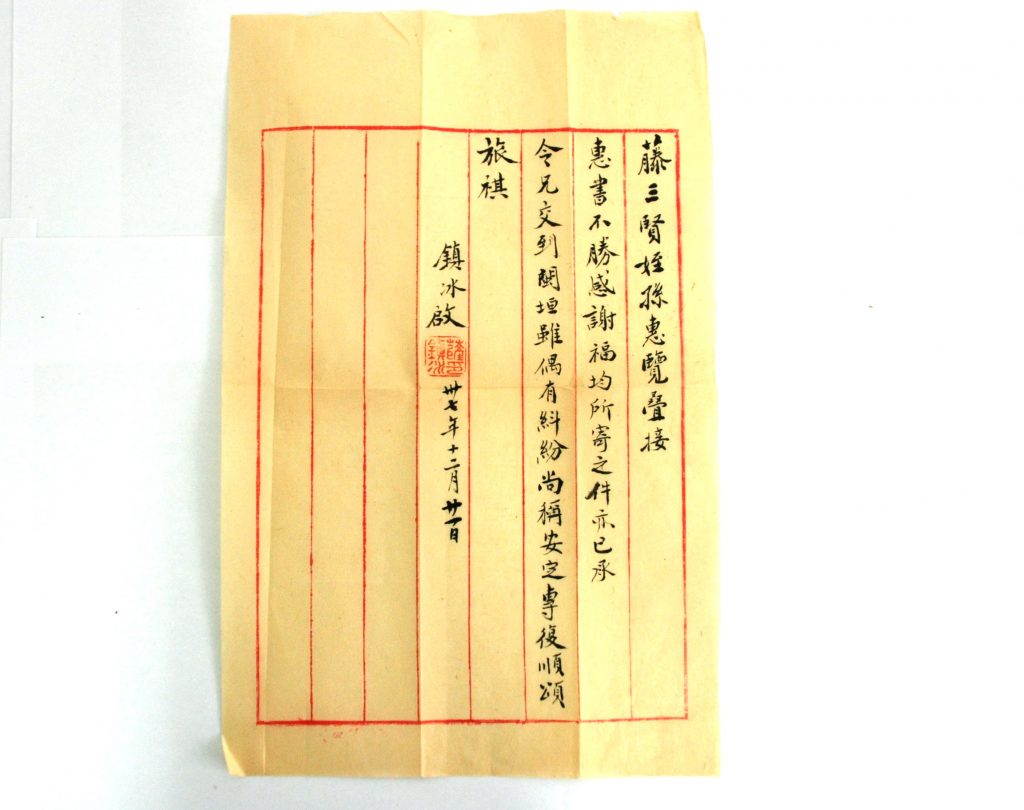 藤三賢姪孫惠覽疊接
惠書不勝感謝福均所寄之件亦已承
令兄交到閩垣雖偶有糾紛尚稱安定專復順頌
旅祺
鎮冰啟
卅七年十二月廿一日